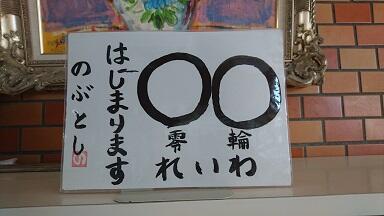 〇〇
零 輪
れいわ
はじまります
のぶとし